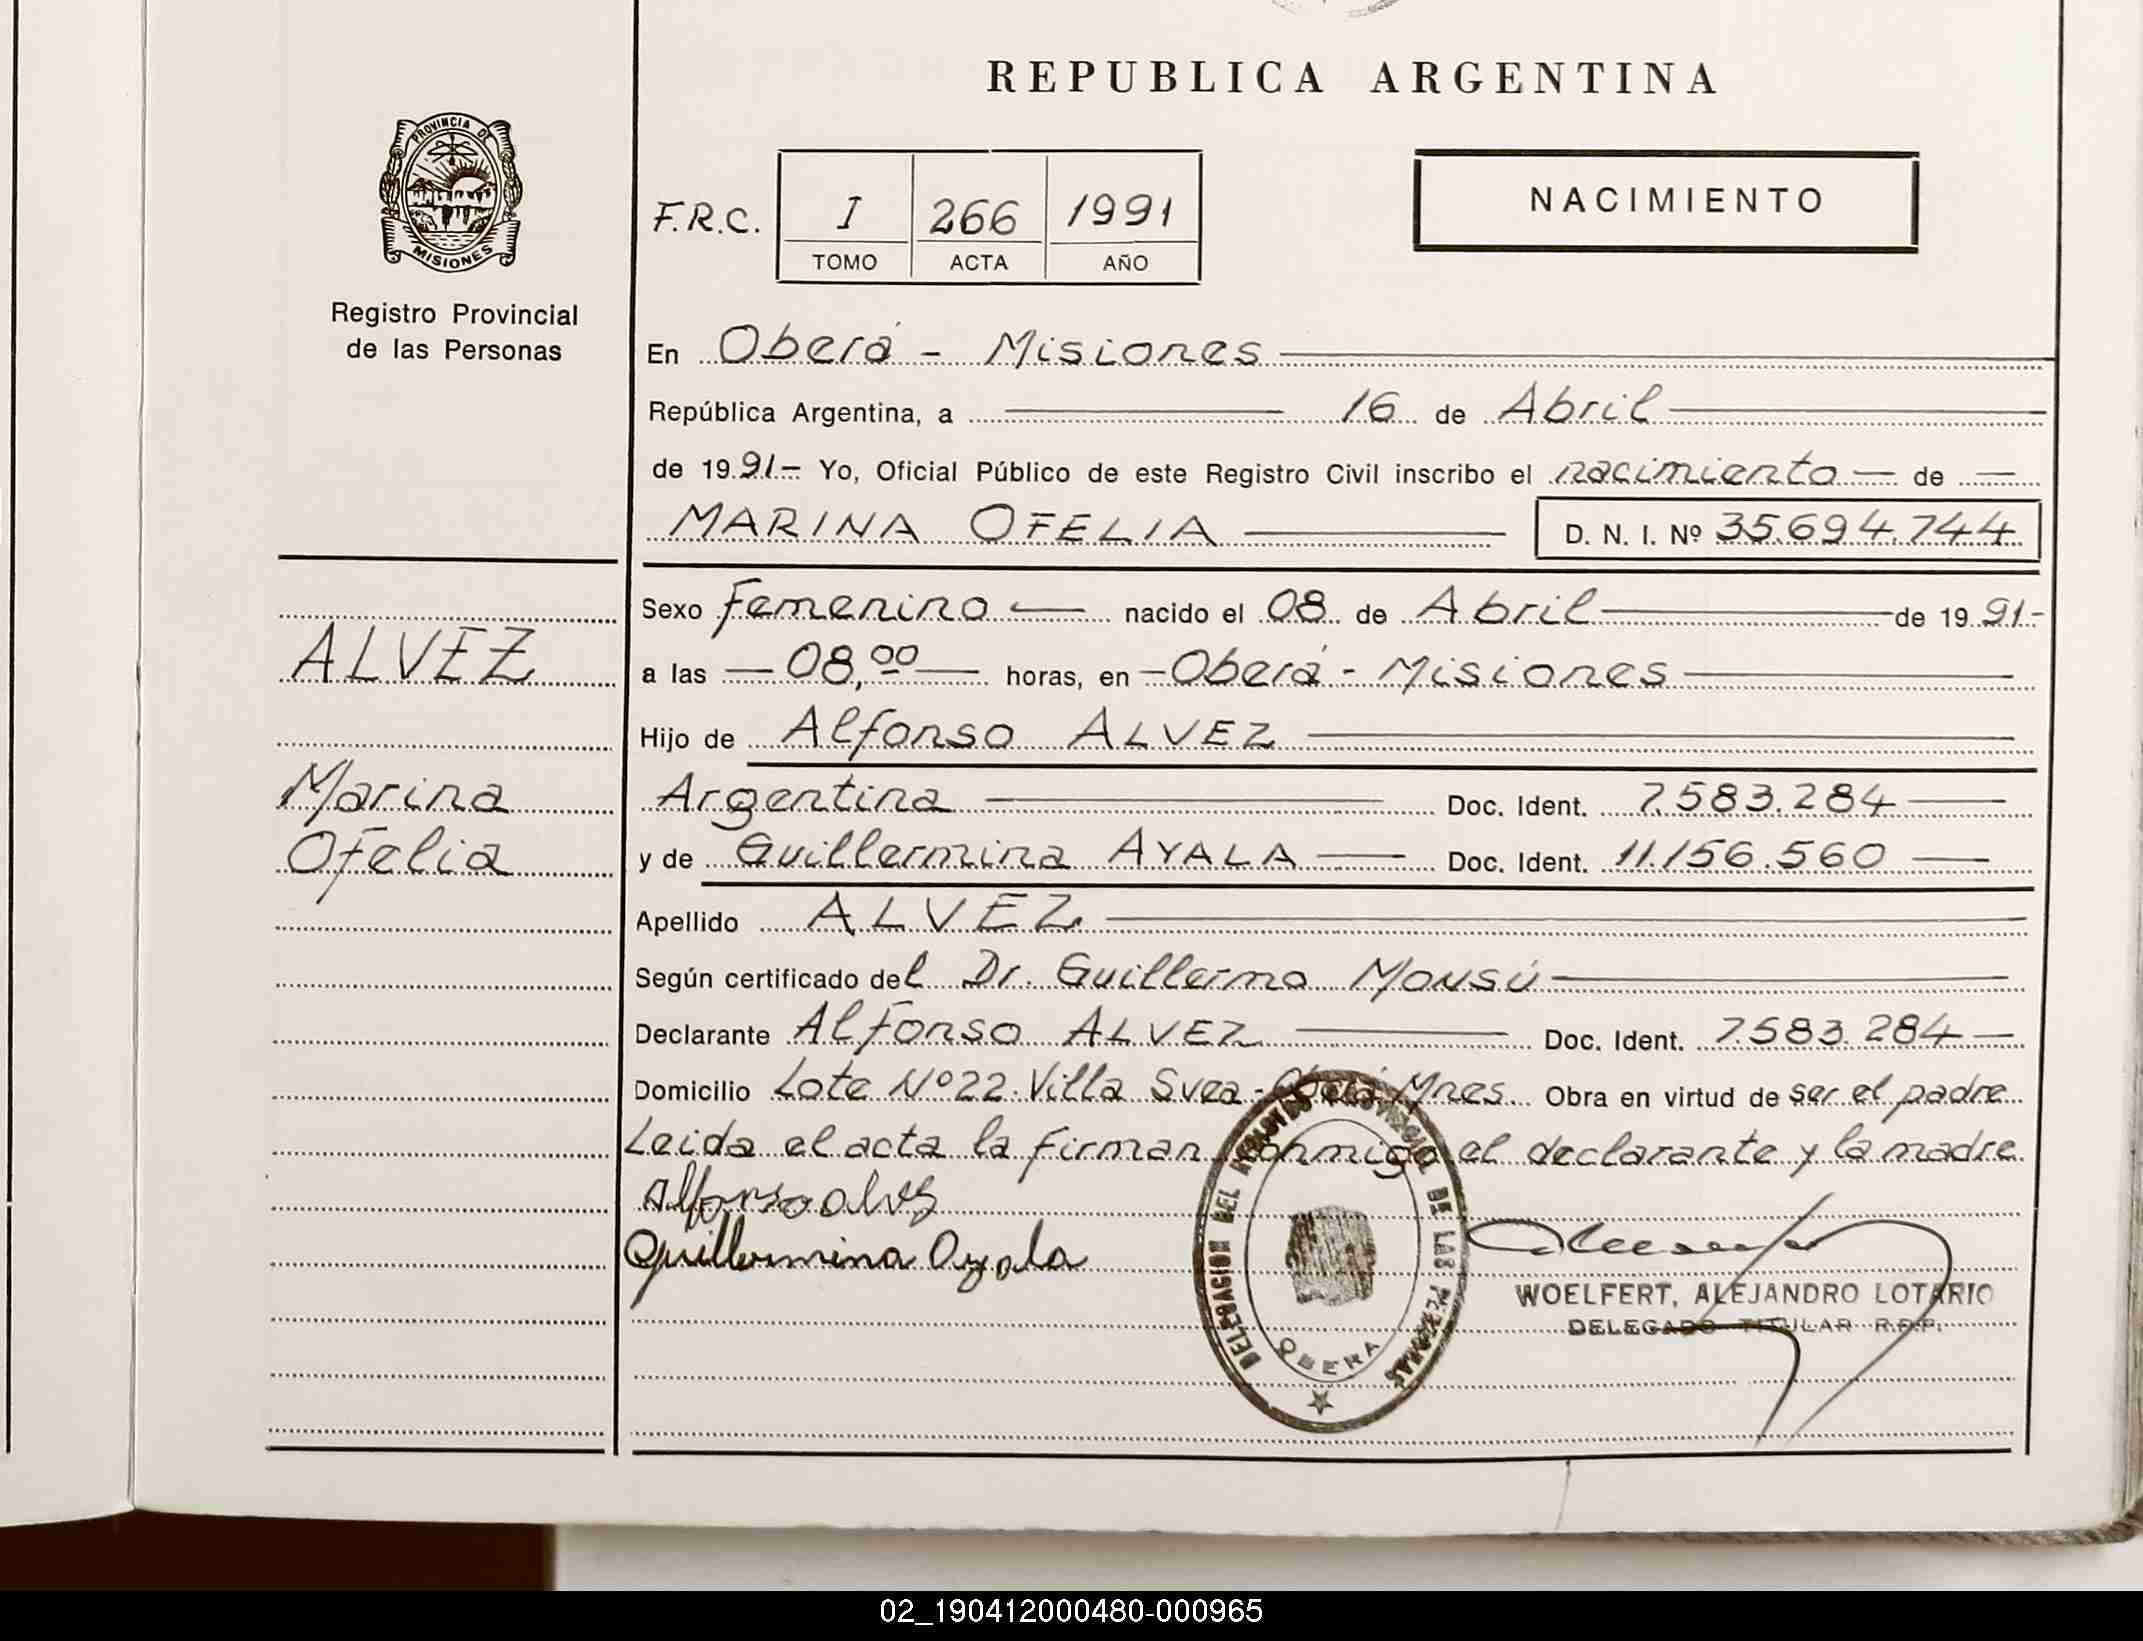 REPUBLICA ARGENTINA
PROVINCIA DE
MISIONES
Registro Provincial
de las Personas
F.R.C.
I 266 1991
TOMO ACTA AÑO
NACIMIENTO
En Oberá - Misiones
República Argentina, a 16 de Abril
de 1991.- Yo, Oficial Público de este Registro Civil inscribo el nacimiento de
MARINA OFELIA D. N. I. Nº 35.694.744
ALVEZ
Marina
Ofelia
Sexo femenino nacido el 08 de Abril de 1991-
a las 08,00 horas, en Oberá - Misiones
Hijo de Alfonso ALVEZ
Argentina Doc. Ident. 7.583.284
y de Guillermina AYALA Doc. Ident. 11.156.560
Apellido ALVEZ
Según certificado del Dr. Guillermo MONSÚ
Declarante Alfonso ALVEZ Doc. Ident. 7.583.284
Domicilio Lote Nº 22. Villa Svea - Oberá Mnes. Obra en virtud de ser el padre
Leida el acta la firman conmigo el declarante y la madre
Alfonso alvez
Guillermina Ayala
DELEGACION DEL REGISTRO PROVINCIAL DE LAS PERSONAS
OBERA
WOELFERT, ALEJANDRO LOTARIO
DELEGADO TITULAR R.P.P.
02_190412000480-000965